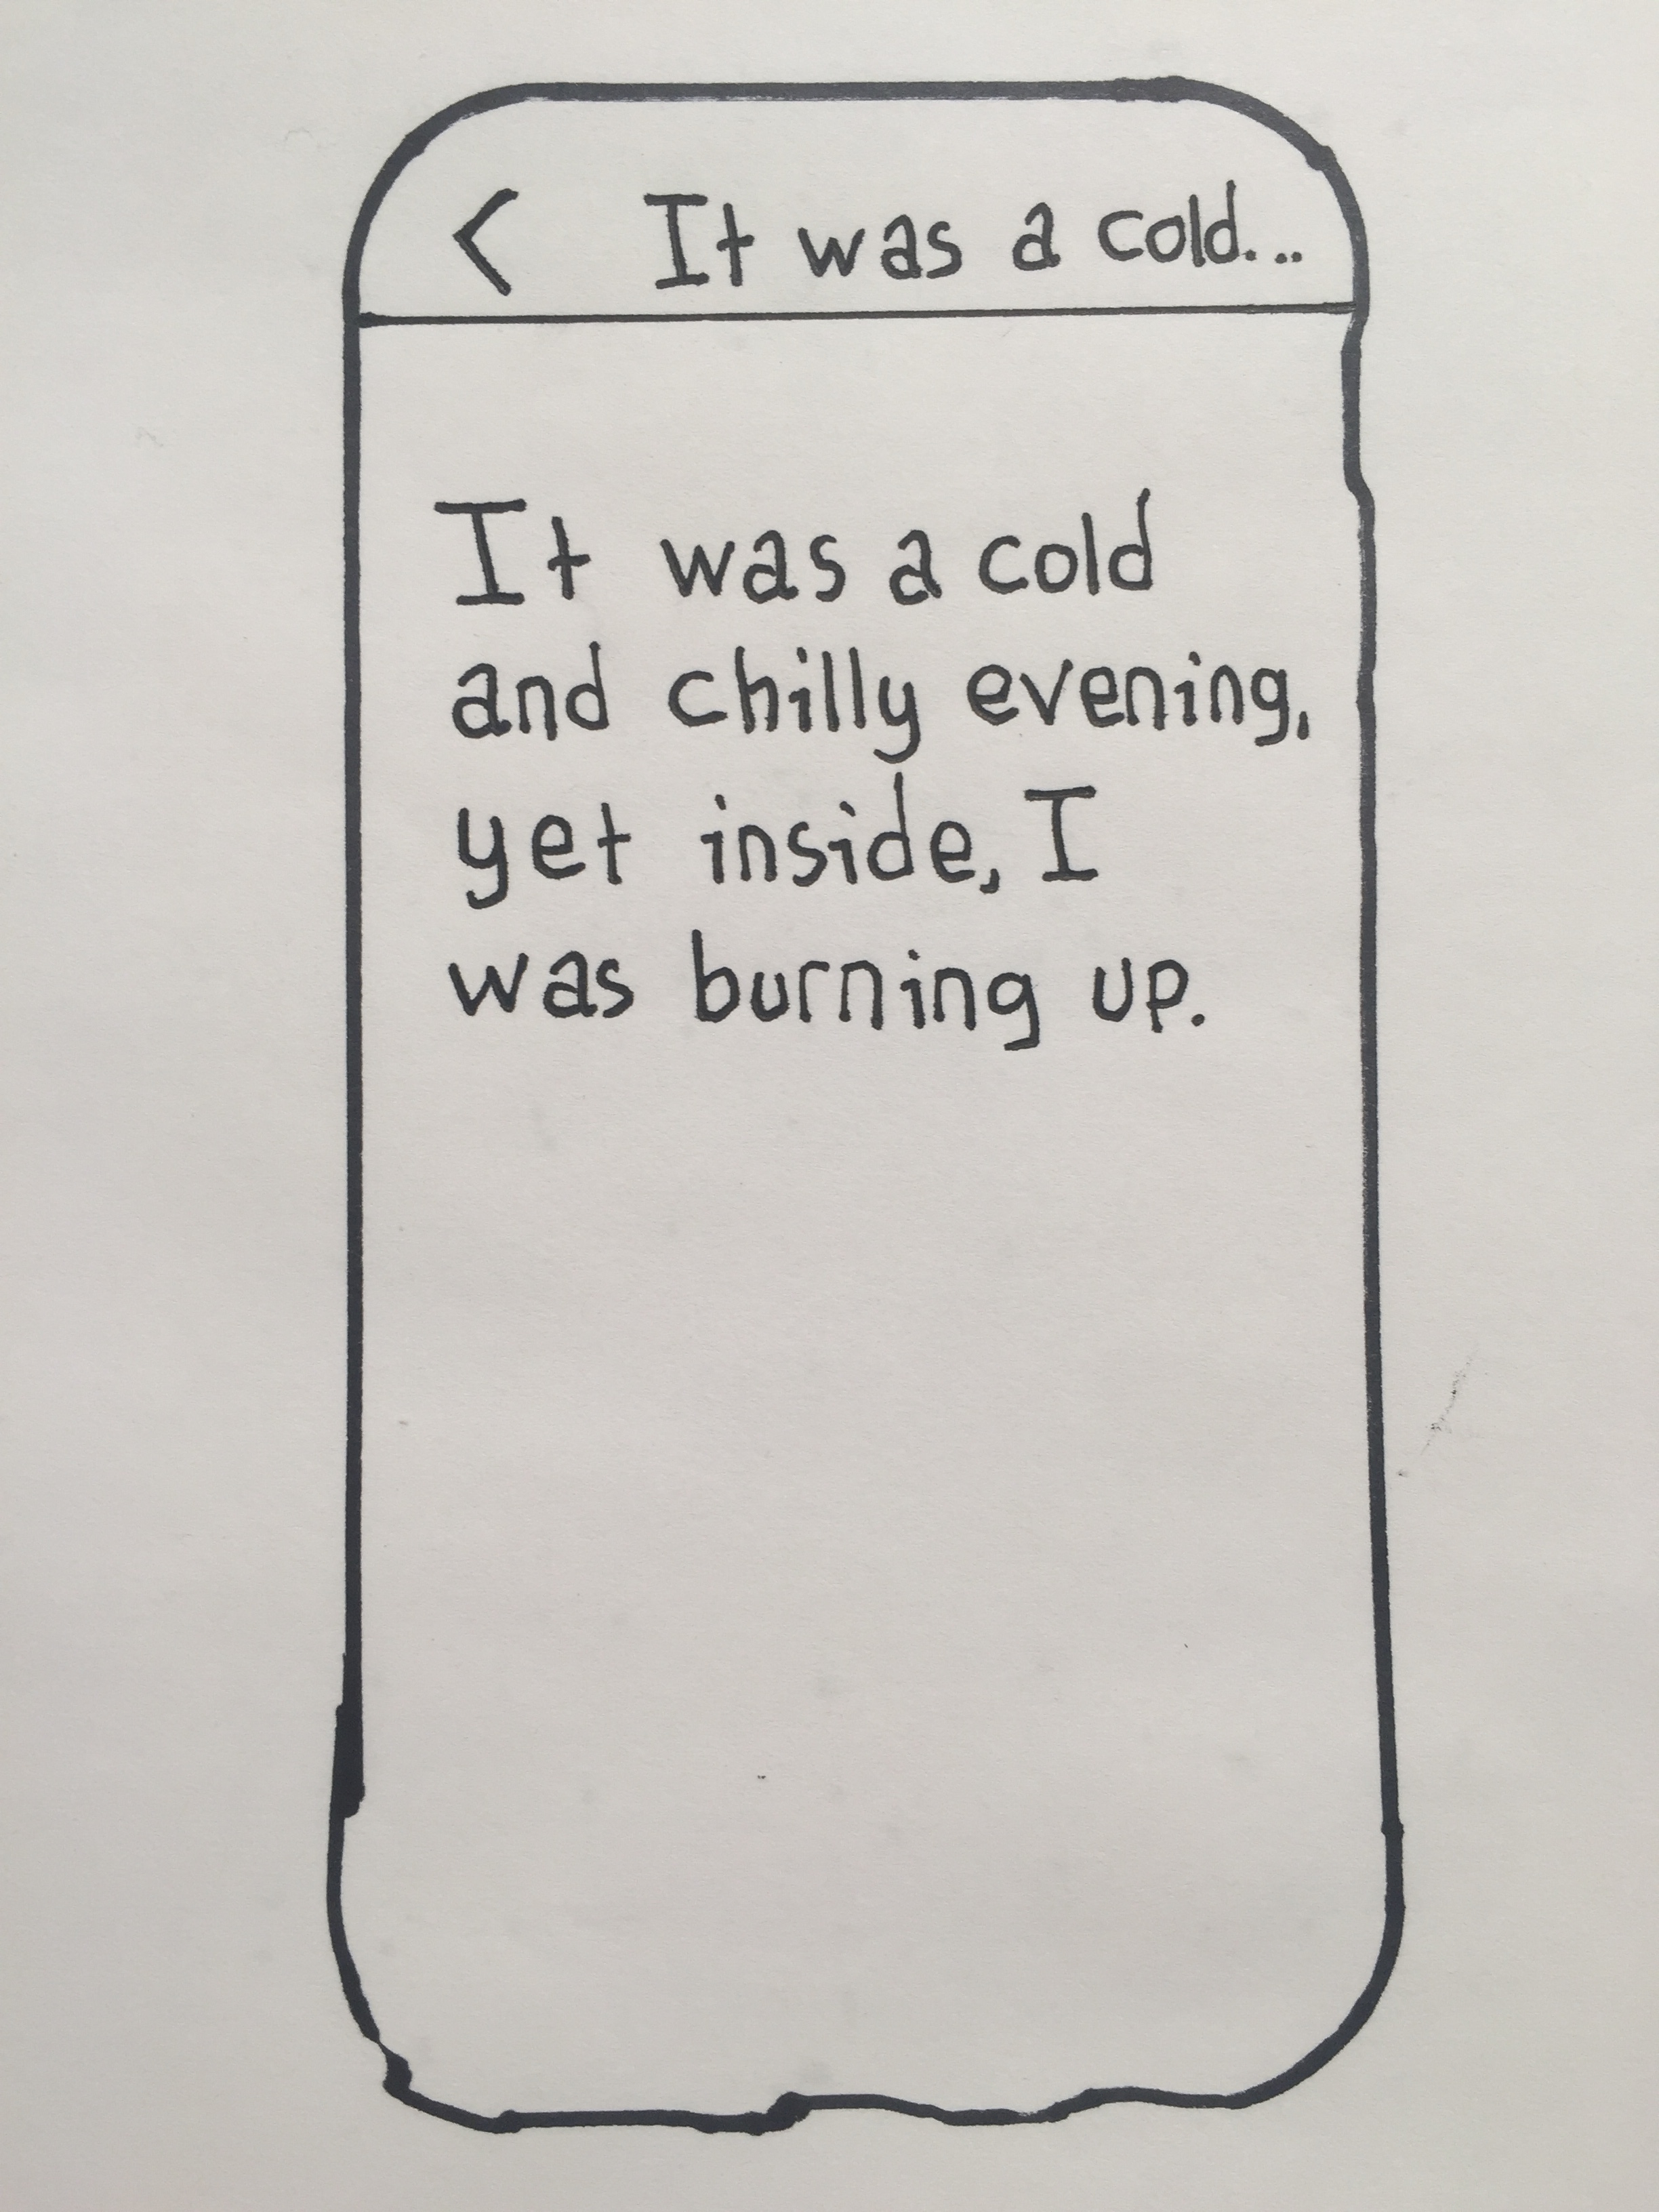 < It was a cold...
It was a cold
and chilly evening,
yet inside, I
was burning up.